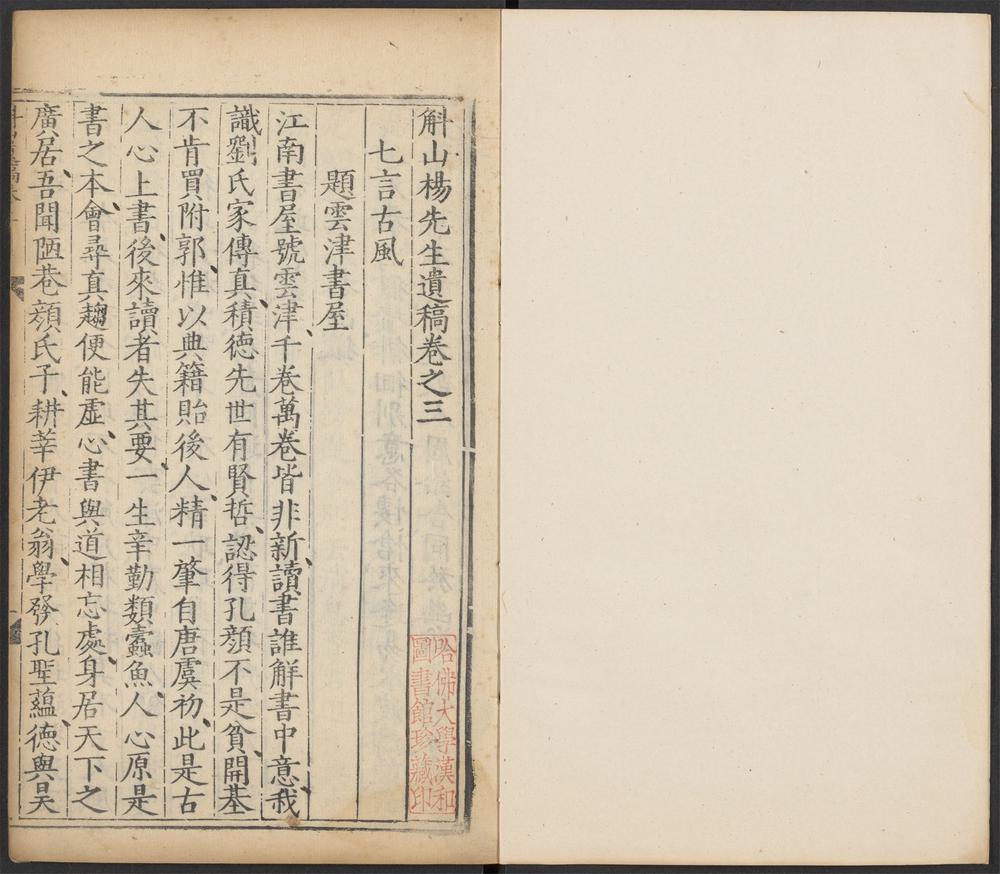 斛山楊先生遺稿卷之三
七言古風
題雲津書屋
江南書屋號雲津、千卷萬卷皆非新、讀書誰解書中意、我
識劉氏家傳真、積德先世有賢哲、認得孔顏不是貧、開基
不肯買附郭、惟以典籍貽後人、精一肇自唐虞初、此是古
人心上書、後來讀者失其要、一生辛勤類蠹魚、人心原是
書之本、會尋真趣便能虛、心書與道相忘處、身居天下之
廣居、吾聞陋巷顏氏子、耕莘伊老翁、學發孔聖蘊、德與昊
哈佛大學漢和
圖書館珍藏印